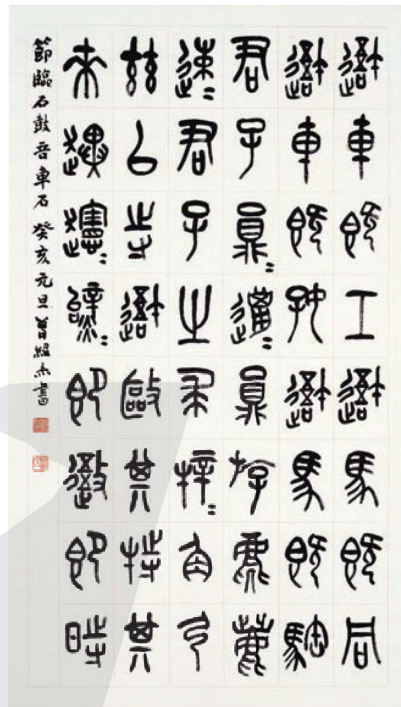 䢒車既工䢒馬既同
䢒車既好䢒馬既𩣡
君子員=邋=員斿麀鹿
速=君子之求角弓
茲以寺䢒敺其特其
來趩即即時
節臨石鼓吾車石 癸亥元旦曾紹杰書